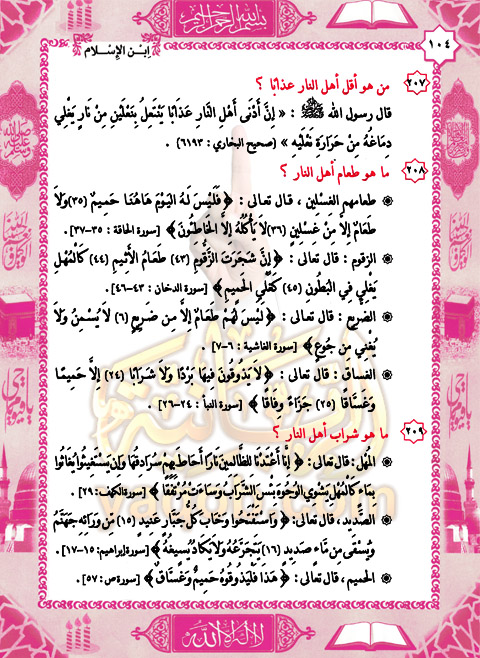 بسم الله الرحمن الرحيم
١٠٤
ابن الإسلام
٢٠٧ من هو أقل أهل النار عذابًا ؟
قال رسول الله ﷺ : « إِنَّ أَدْنَى أَهْلِ النَّارِ عَذَابًا يَنْتَعِلُ بِنَعْلَيْنِ مِنْ نَارٍ يَغْلِي
دِمَاغُهُ مِنْ حَرَارَةِ نَعْلَيْهِ » (صحيح البخاري : ٦١٩٣) .
٢٠٨ ما هو طعام أهل النار ؟
طعامهم الغسلين ، قال تعالى : ﴿ فَلَيْسَ لَهُ الْيَوْمَ هَاهُنَا حَمِيمٌ (٣٥) وَلَا
طَعَامٌ إِلَّا مِنْ غِسْلِينٍ (٣٦) لَا يَأْكُلُهُ إِلَّا الْخَاطِئُونَ ﴾ [سورة الحاقة : ٣٥-٣٧].
الزقوم : قال تعالى : ﴿ إِنَّ شَجَرَتَ الزَّقُّومِ (٤٣) طَعَامُ الْأَثِيمِ (٤٤) كَالْمُهْلِ
يَغْلِي فِي الْبُطُونِ (٤٥) كَغَلْيِ الْحَمِيمِ ﴾ [سورة الدخان : ٤٣-٤٦].
الضريع : قال تعالى : ﴿ لَيْسَ لَهُمْ طَعَامٌ إِلَّا مِنْ ضَرِيعٍ (٦) لَا يُسْمِنُ وَلَا
يُغْنِي مِنْ جُوعٍ ﴾ [سورة الغاشية : ٦-٧].
الغساق : قال تعالى : ﴿ لَا يَذُوقُونَ فِيهَا بَرْدًا وَلَا شَرَابًا (٢٤) إِلَّا حَمِيمًا
وَغَسَّاقًا (٢٥) جَزَاءً وِفَاقًا ﴾ [سورة النبأ : ٢٤-٢٦].
٢٠٩ ما هو شراب أهل النار ؟
المُهل : قال تعالى : ﴿ إِنَّا أَعْتَدْنَا لِلظَّالِمِينَ نَارًا أَحَاطَ بِهِمْ سُرَادِقُهَا وَإِنْ يَسْتَغِيثُوا يُغَاثُوا
بِمَاءٍ كَالْمُهْلِ يَشْوِي الْوُجُوهَ بِئْسَ الشَّرَابُ وَسَاءَتْ مُرْتَفَقًا ﴾ [سورة الكهف : ٢٩].
الصديد ، قال تعالى : ﴿ وَاسْتَفْتَحُوا وَخَابَ كُلُّ جَبَّارٍ عَنِيدٍ (١٥) مِّن وَرَائِهِ جَهَنَّمُ
وَيُسْقَى مِن مَّاءٍ صَدِيدٍ (١٦) يَتَجَرَّعُهُ وَلَا يَكَادُ يُسِيغُهُ ﴾ [سورة إبراهيم : ١٥-١٧].
الحميم ، قال تعالى : ﴿ هَذَا فَلْيَذُوقُوهُ حَمِيمٌ وَغَسَّاقٌ ﴾ [سورة ص : ٥٧].
لا إله إلا الله